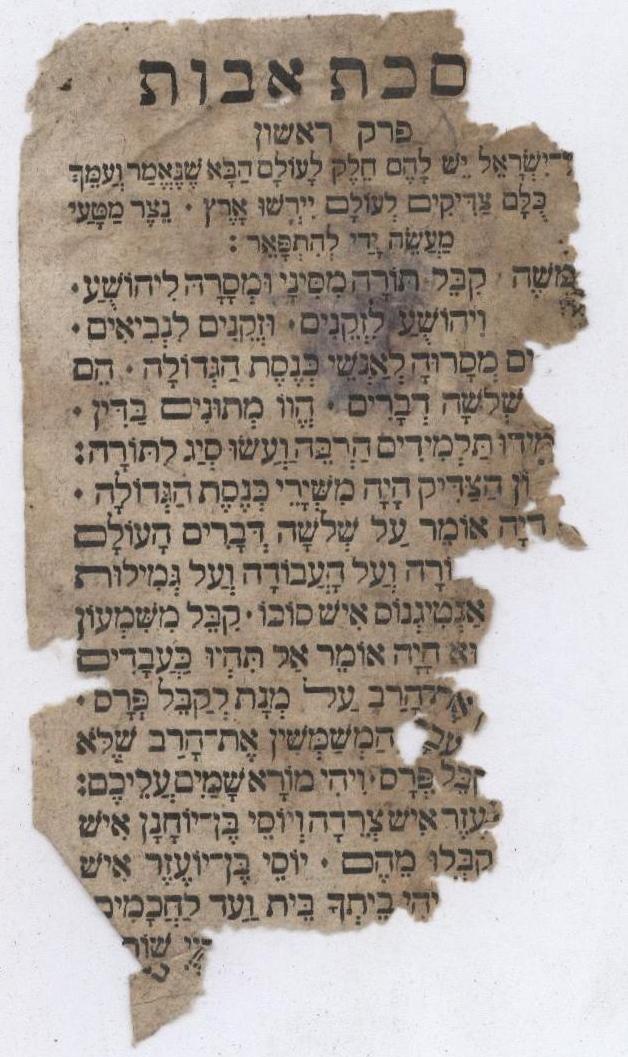 סכת אבות
פרק ראשון
ל־יִשְׂרָאֵל יֵשׁ לָהֶם חֵלֶק לָעוֹלָם הַבָּא שֶׁנֶּאֱמַר וְעַמֵּךְ
כֻּלָּם צַדִּיקִים לְעוֹלָם יִירְשׁוּ אָרֶץ · נֵצֶר מַטָּעַי
מַעֲשֵׂה יָדַי לְהִתְפָּאֵר :
מֹשֶׁה קִבֵּל תּוֹרָה מִסִּינַי וּמְסָרָהּ לִיהוֹשֻׁעַ ·
וִיהוֹשֻׁעַ לִזְקֵנִים · וּזְקֵנִים לִנְבִיאִים ·
ים מְסָרוּהָ לְאַנְשֵׁי כְּנֶסֶת הַגְּדוֹלָה · הֵם
שְׁלֹשָׁה דְבָרִים · הֱווּ מְתוּנִים בַּדִּין ·
מִידוּ תַּלְמִידִים הַרְבֵּה וַעֲשׂוּ סְיָג לַתּוֹרָה :
וֹן הַצַּדִּיק הָיָה מִשְּׁיָרֵי כְּנֶסֶת הַגְּדוֹלָה ·
הָיָה אוֹמֵר עַל שְׁלֹשָׁה דְּבָרִים הָעוֹלָם
וֹרָה וְעַל הָעֲבוֹדָה וְעַל גְּמִילוּת
אַנְטִיגְנוֹס אִישׁ סוֹכוֹ · קִבֵּל מִשִּׁמְעוֹן
וּא הָיָה אוֹמֵר אַל תִּהְיוּ כַּעֲבָדִים
אֶת־הָרַב עַל מְנָת לְקַבֵּל פְּרָס ·
הַמְשַׁמְּשִׁין אֶת־הָרַב שֶׁלֹּא
קַבֵּל פְּרָס · וִיהִי מוֹרָא שָׁמַיִם עֲלֵיכֶם :
עֶזֶר אִישׁ צְרֵדָה וְיוֹסֵי בֶּן־יוֹחָנָן אִישׁ
קִבְּלוּ מֵהֶם · יוֹסֵי בֶּן־יוֹעֶזֶר אִישׁ
יְהִי בֵיתְךָ בֵּית וַעַד לַחֲכָמִים